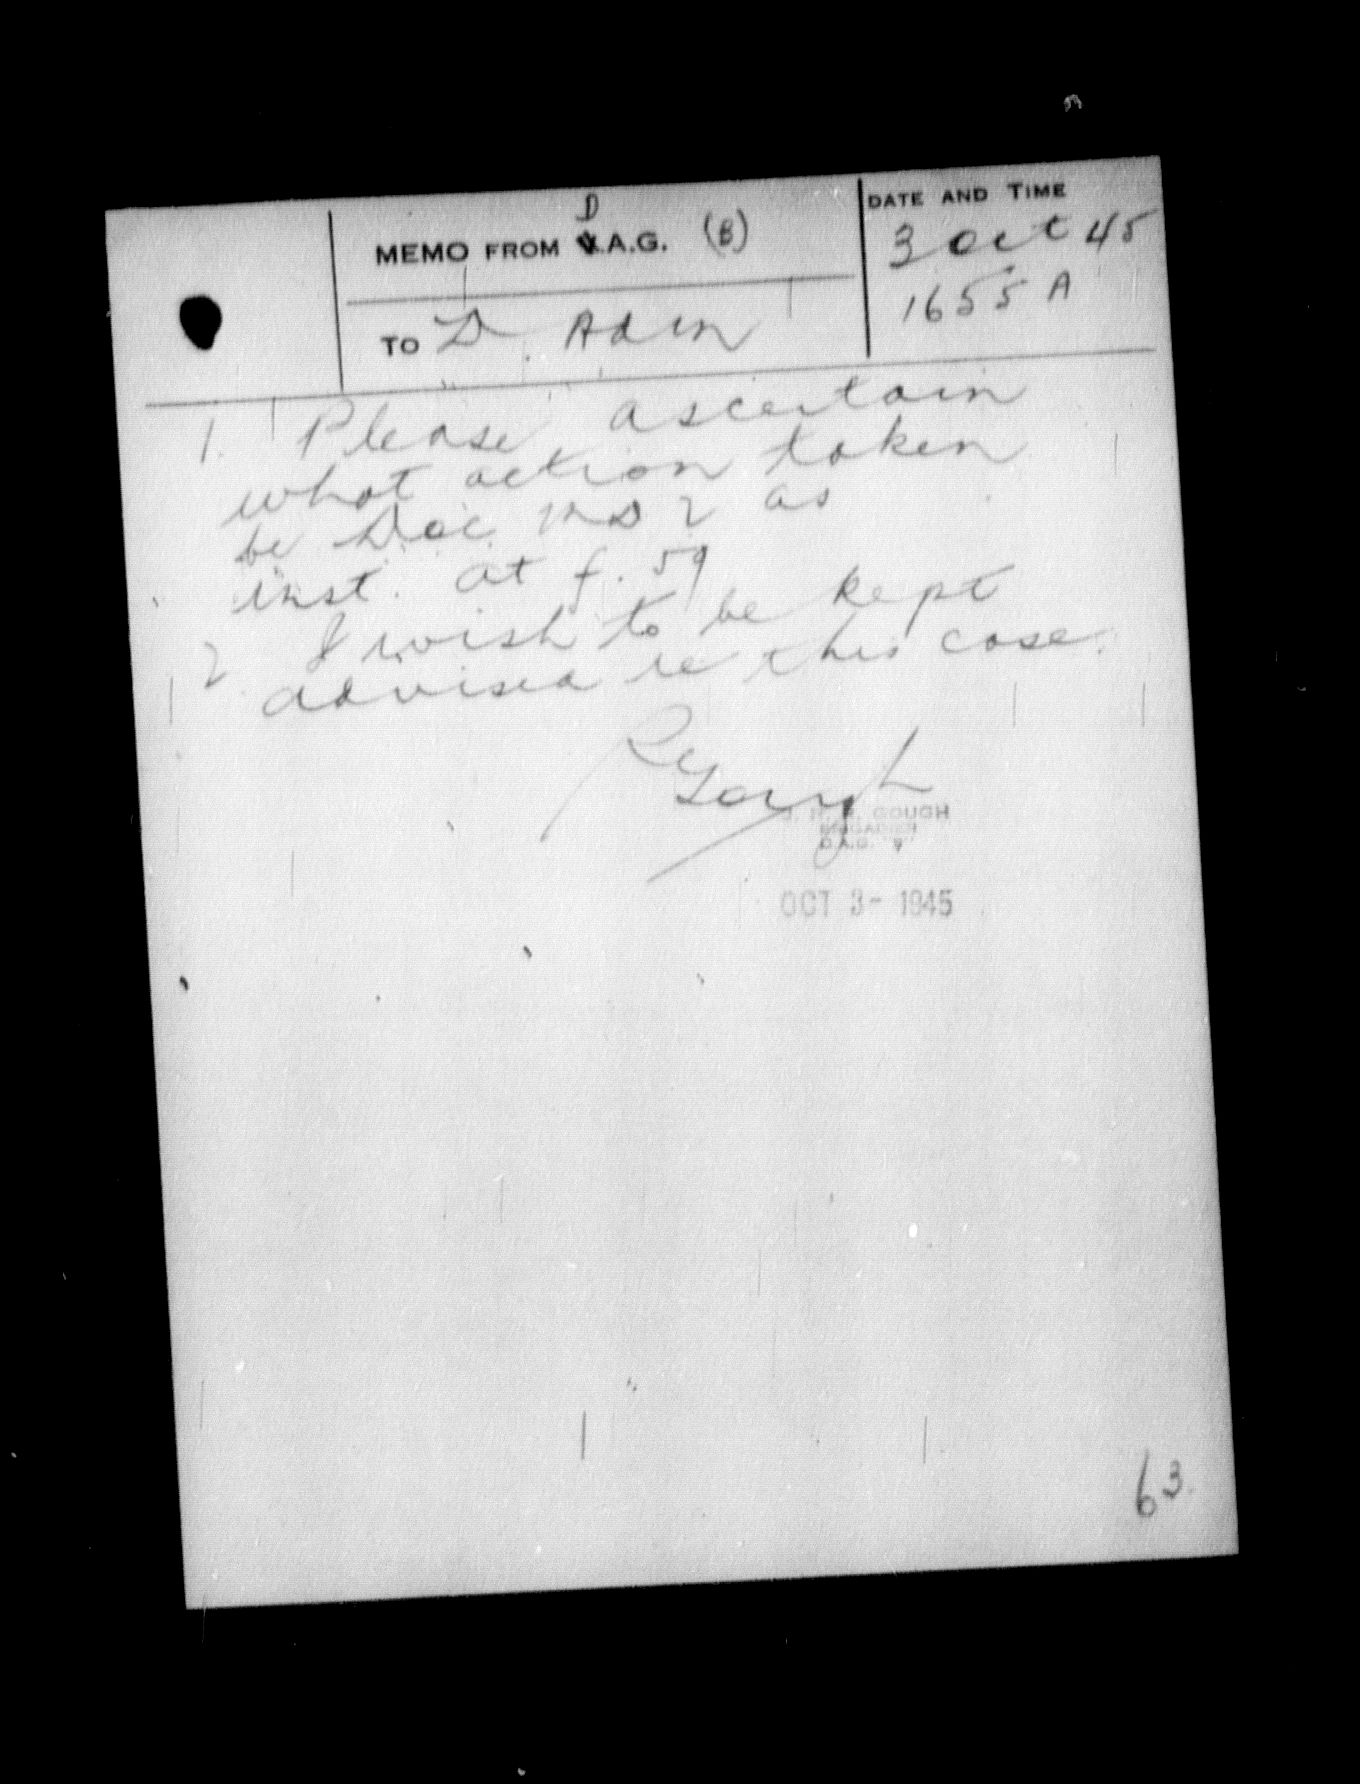 D
MEMO FROM V.A.G. (B)
DATE AND TIME
3 Oct 45
1655 A
TO D. Adm
1. Please ascertain
what action taken
be DOC MD 2 as
inst. at f. 59
2 I wish to be kept
advised re this case.
Gough
GOUGH
BRIGADIER
D.A.G. "B"
OCT 3- 1945
63